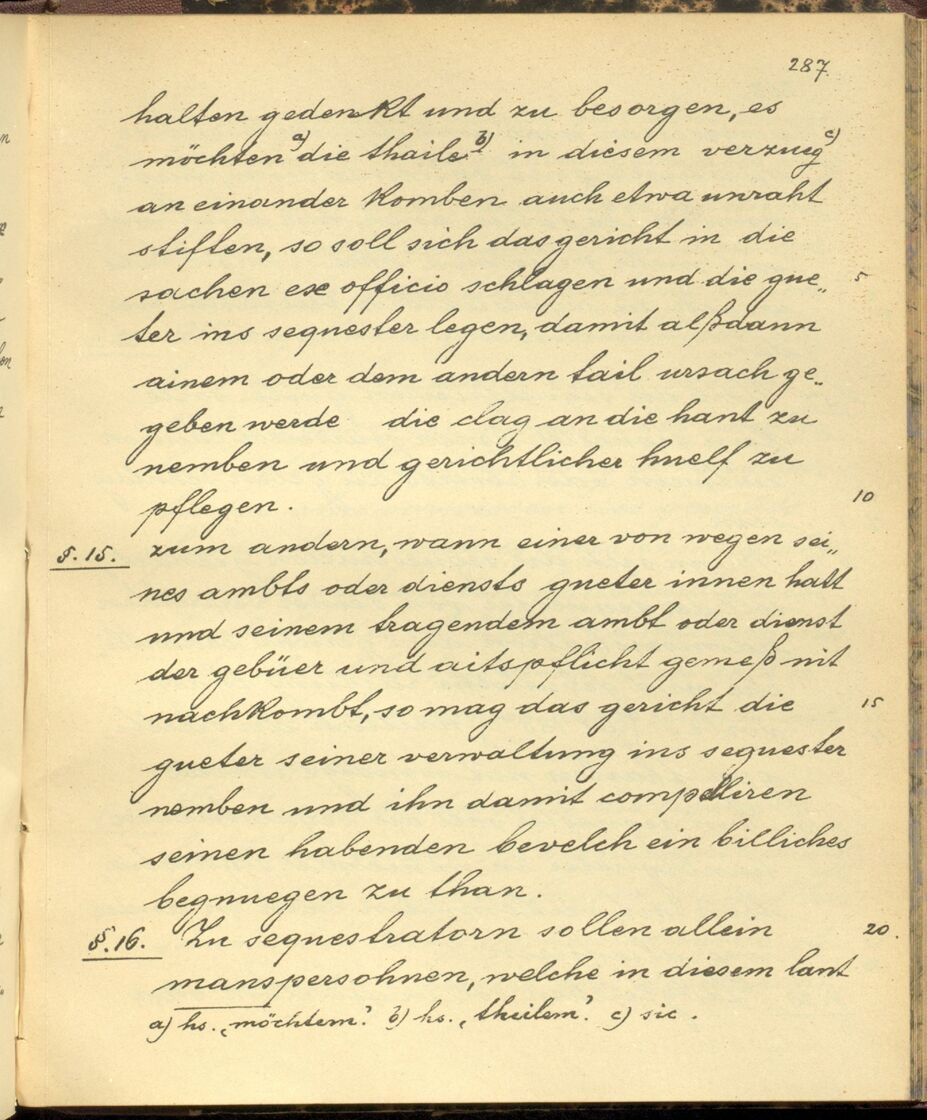 287.
halten gedenkt und zu besorgen, es
möchten a) die thaile b) in diesem verzueg c)
an einander komben auch etwa unraht
stiften, so soll sich das gericht in die
sachen ex officio schlagen und die gue„ 5
ter ins sequester legen, damit alßdann
ainem oder dem andern tail ursach ge„
geben werde die clag an die hant zu
nemben und gerichtlicher huelf zu
pflegen. 10
§. 15. zum andern, wann einer von wegen sei„
nes ambts oder diensts gueter innen hatt
und seinem tragendem ambt oder dienst
der gebüer und aitspflicht gemeß nit
nachkombt, so mag das gericht die 15
gueter seiner verwaltung ins sequester
nemben und ihn damit compelliren
seinen habenden bevelch ein billiches
begnuegen zu than.
§. 16. Zu sequestratorn sollen allein 20.
manspersohnen, welche in diesem lant
a) hs. „möchtem“. b) hs. „theilem“. c) sic.